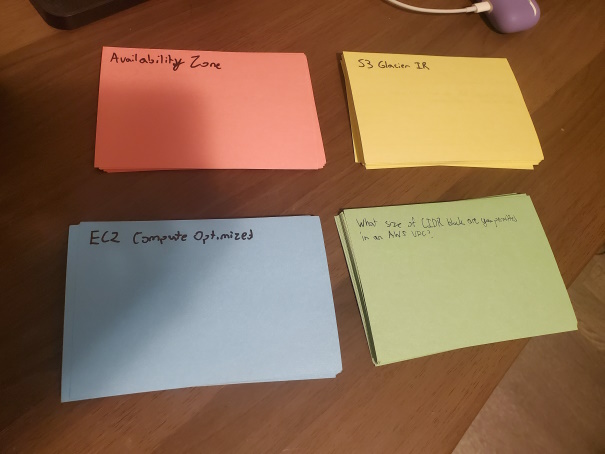 Availability Zone
S3 Glacier IR
EC2 Compute Optimized
What size of CIDR block are you permitted
in an AWS VPC?